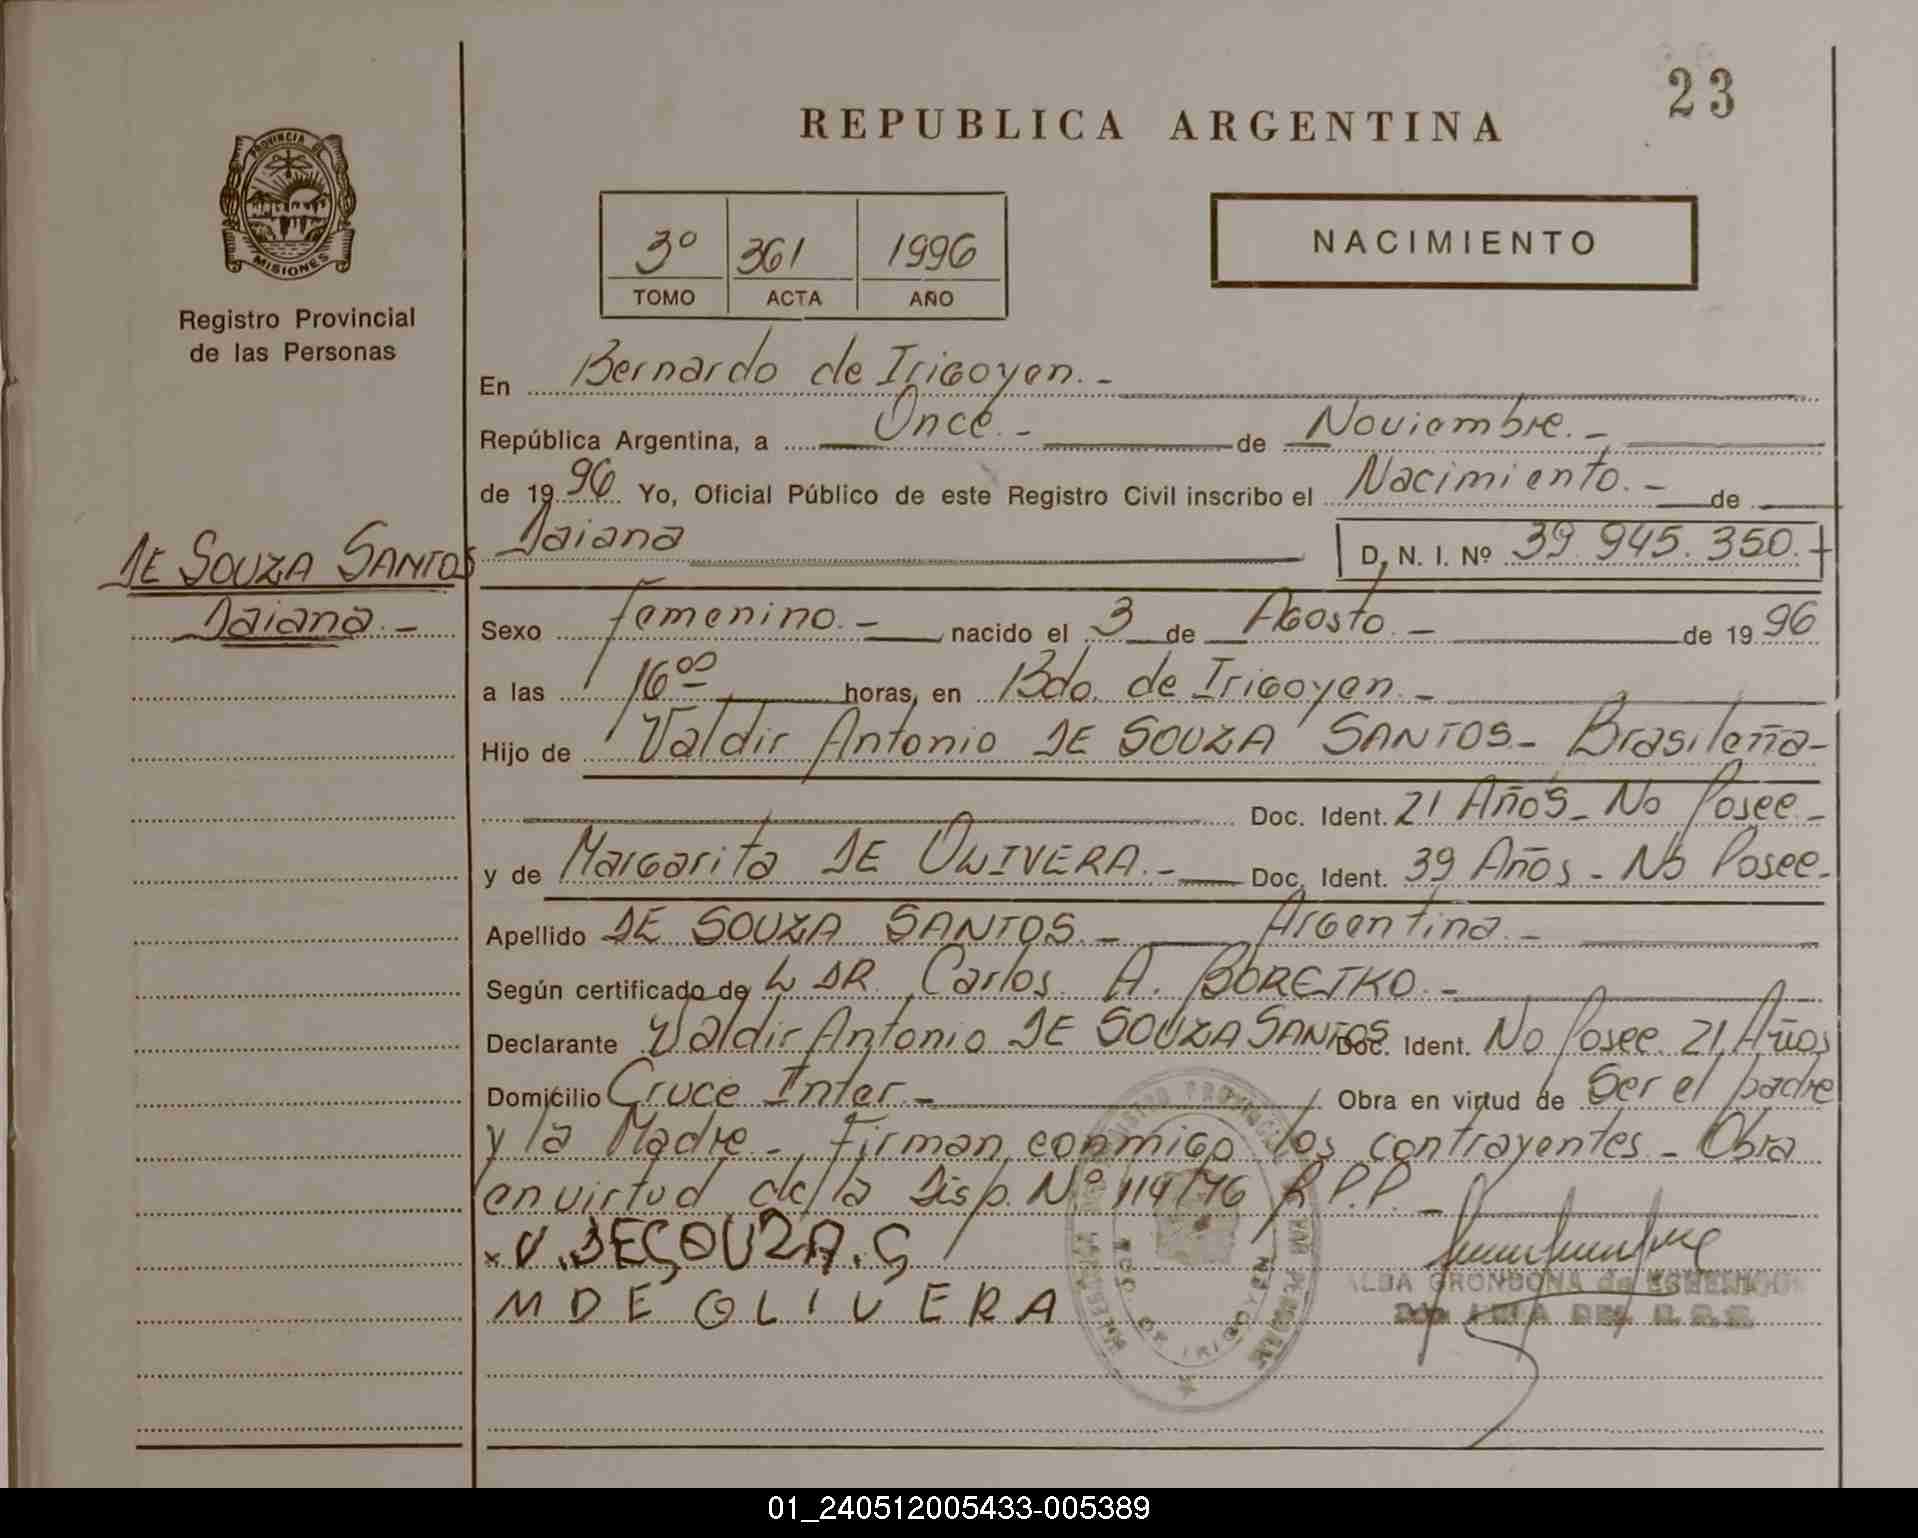 23
REPUBLICA ARGENTINA
PROVINCIA DE
MISIONES
Registro Provincial
de las Personas
3º 361 1996
TOMO ACTA AÑO
NACIMIENTO
En Bernardo de Irigoyen.-
República Argentina, a Once.- de Noviembre.-
de 1996 Yo, Oficial Público de este Registro Civil inscribo el Nacimiento.- de
DE SOUZA SANTOS
Daiana.-
Daiana D. N. I. Nº 39.945.350.-
Sexo Femenino.- nacido el 3 de Agosto.- de 1996
a las 16ºº horas, en Bdo. de Irigoyen.-
Hijo de Valdir Antonio DE SOUZA SANTOS- Brasileña-
Doc. Ident. 21 Años- No Posee-
y de Margarita DE OLIVERA.- Doc. Ident. 39 Años- No Posee-
Apellido DE SOUZA SANTOS.- Argentina-
Según certificado de L DR. Carlos A. BORETKO.-
Declarante Valdir Antonio DE SOUZA SANTOS Doc. Ident. No Posee. 21 Años
Domicilio Cruce Inter- Obra en virtud de Ser el padre
y la Madre- Firman conmigo los contrayentes- Obra
en virtud de la Disp. Nº 114/76 R.P.P.-
x V. DESOUZA. S
M DE OLIVERA
ALBA GRONDONA de
01_240512005433-005389